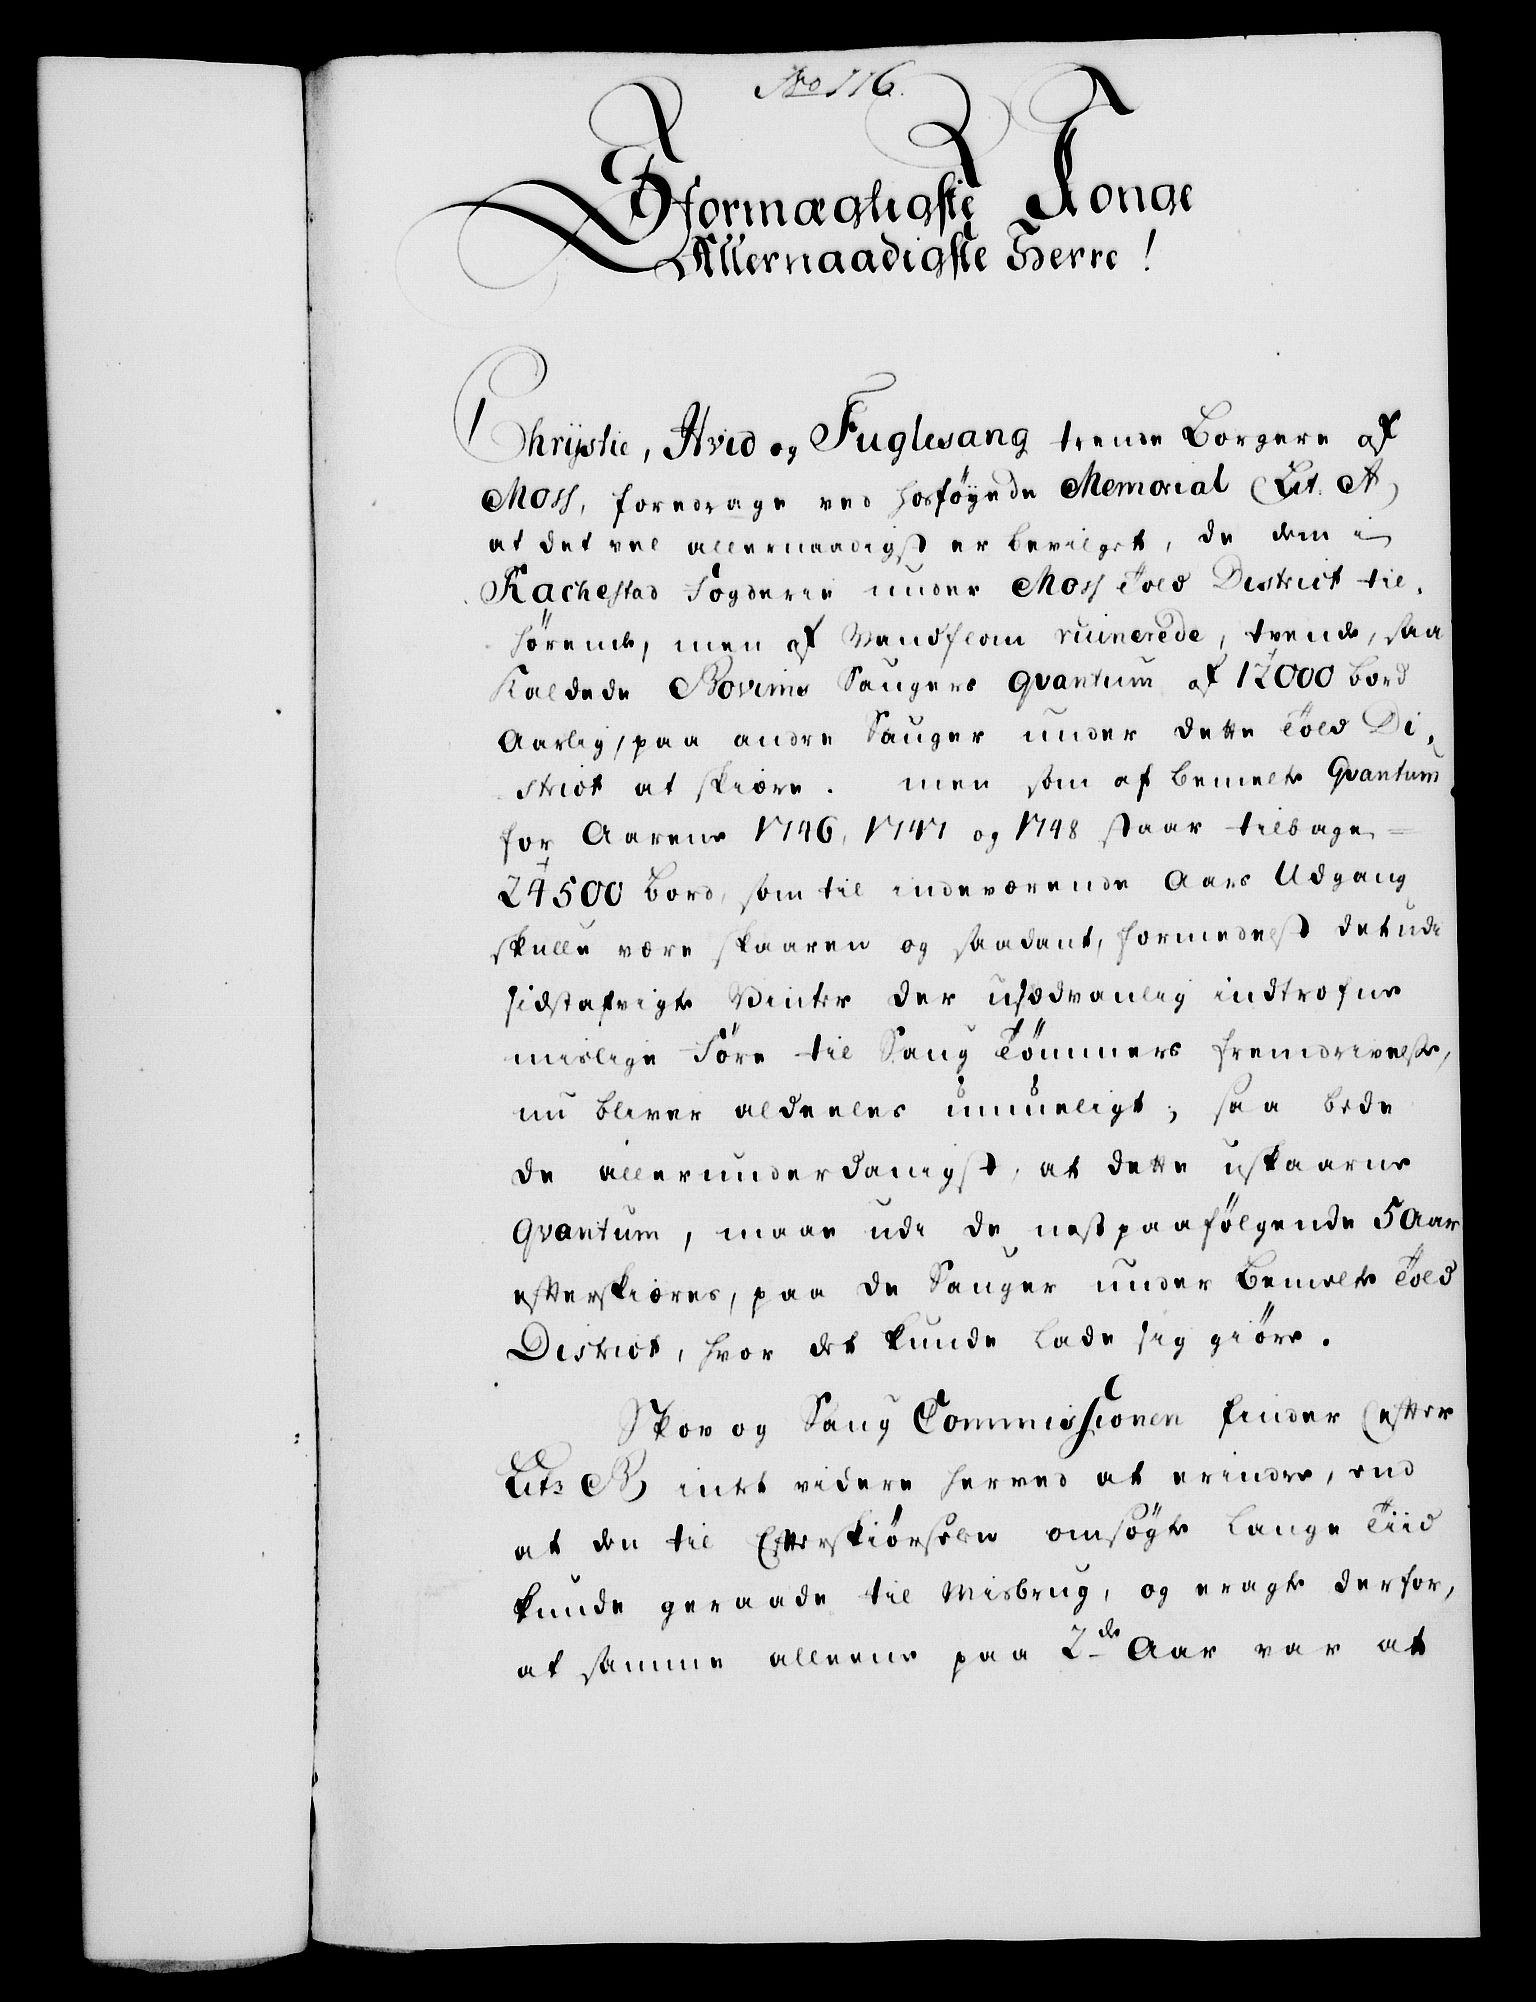 No 116.
Stormægtigste Konge
Allernaadigste Herre!
Chrijstie, Hvid og Fuglesang trende Borgere af
Moss, foredrage ved hosföyede Memorial (Lit. A)
at det vel allernaadigst er bevilget, de dem i
Rachestad Fogderie under Moss Told District til-
hörende, men af Vandflom ruinerede, trende, saa
kaldede Bovims Saugers qvantum af 12000 bord
Aarlig, paa andre Sauger under dette Told Di-
strict at skiære. men som af bemelte Qvantum
for Aarene 1746, 1747 og 1748 staar tilbage =
24500 bord, som til indeværende Aars Udgang
skulle være skaaren og saadant, formedelst det udi
sidstafvigte Vinter der usædvanlig indtrofne
mislige Före til Saug Tömmers fremdrivelse,
nu bliver aldeeles umueligt; saa bede
de allerunderdanigst, at dette uskaarne
Qvantum, maae udi de nestpaafölgende 5 Aar
efterskiæres, paa de Sauger under bemelte Told
District, hvor det kunde lade sig giöre.
Skov og Saug Commissionen finder (efter
Litr B) intet videre herved at erindre, end
at den til Efterskiörselen omsögte lange Tiid
kunde geraade til Misbrug, og eragte derfor,
at samme alleene paa 2de Aar var at